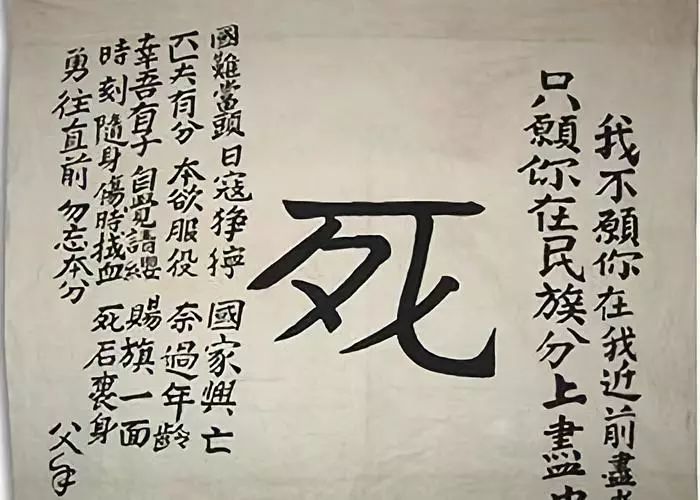 我不願你在我近前盡
只願你在民族分上盡
死
國難當頭 日寇猙獰 國家興亡
匹夫有分 本欲服役 奈過年齡
幸吾有子 自覺請纓 賜旗一面
時刻隨身 傷時拭血 死后裹身
勇往直前 勿忘本分 父手